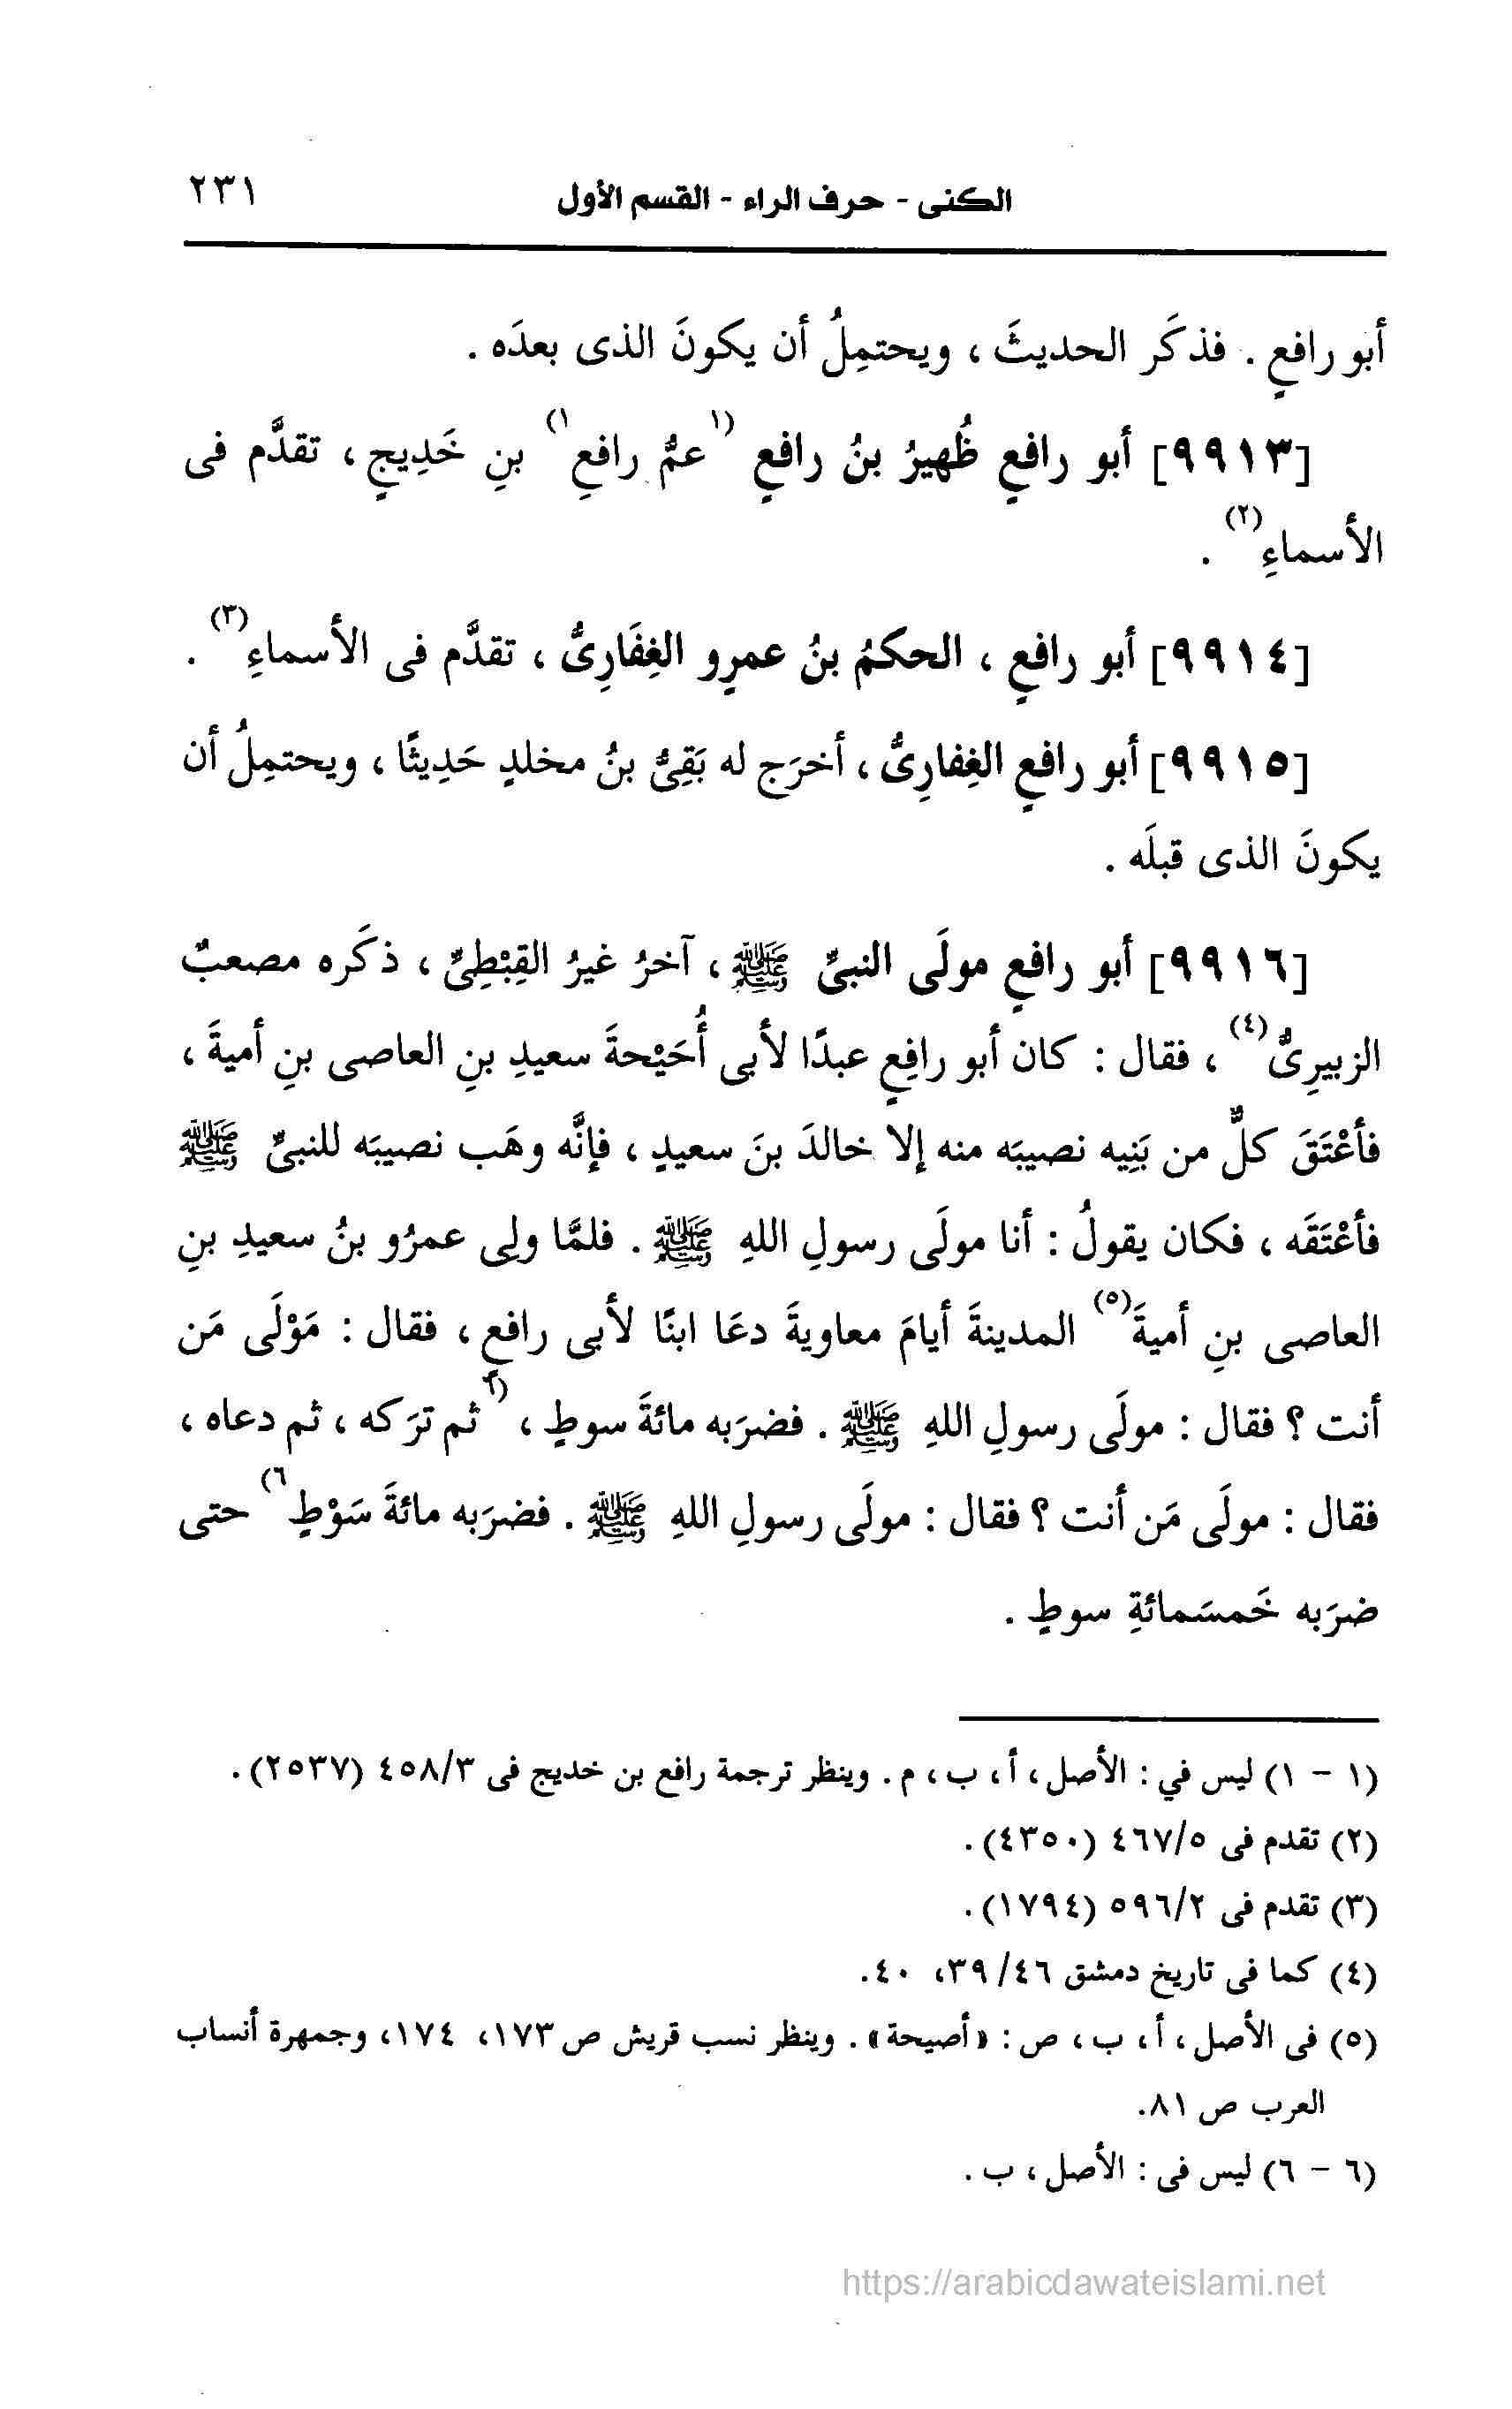 الكنى - حرف الراء - القسم الأول ٢٣١
أبو رافعٍ . فذكَر الحديثَ ، ويحتمِلُ أن يكونَ الذى بعدَه .
[٩٩١٣] أبو رافعٍ ظُهيرُ بنُ رافعٍ (١عمُّ رافعِ١) بنِ خَدِيجٍ ، تقدَّم فى
الأسماءِ(٢) .
[٩٩١٤] أبو رافعٍ ، الحكمُ بنُ عمرٍو الغِفَارِىُّ ، تقدَّم فى الأسماءِ(٣) .
[٩٩١٥] أبو رافعٍ الغِفارِىُّ ، أخرَج له بَقِىُّ بنُ مخلدٍ حَدِيثًا ، ويحتمِلُ أن
يكونَ الذى قبلَه .
[٩٩١٦] أبو رافعٍ مولَى النبىِّ ﷺ ، آخرُ غيرُ القِبْطِىِّ ، ذكَره مصعبٌ
الزبيرِىُّ(٤) ، فقال : كان أبو رافِعٍ عبدًا لأبى أُحَيْحةَ سعيدِ بنِ العاصى بنِ أميةَ ،
فأعْتَقَ كلٌّ من بَنِيه نصيبَه منه إلا خالدَ بنَ سعيدٍ ، فإنَّه وهَب نصيبَه للنبىِّ ﷺ
فأعْتَقَه ، فكان يقولُ : أنا مولَى رسولِ اللهِ ﷺ . فلمَّا ولِى عمرُو بنُ سعيدِ بنِ
العاصى بنِ أميةَ(٥) المدينةَ أيامَ معاويةَ دعَا ابنًا لأبى رافعٍ ، فقال : مَوْلَى مَن
أنت ؟ فقال : مولَى رسولِ اللهِ ﷺ . فضرَبه مائةَ سوطٍ ، (٦ثم ترَكه ، ثم دعاه ،
فقال : مولَى مَن أنت ؟ فقال : مولَى رسولِ اللهِ ﷺ . فضرَبه مائةَ سَوْطٍ٦) حتى
ضرَبه خَمسَمائةِ سوطٍ .
(١ - ١) ليس في : الأصل ، أ ، ب ، م . وينظر ترجمة رافع بن خديج فى ٤٥٨/٣ (٢٥٣٧) .
(٢) تقدم فى ٤٦٧/٥ (٤٣٥٠) .
(٣) تقدم فى ٥٩٦/٢ (١٧٩٤) .
(٤) كما فى تاريخ دمشق ٤٦/ ٣٩، ٤٠.
(٥) فى الأصل ، أ ، ب ، ص : «أصيحة» . وينظر نسب قريش ص ١٧٣، ١٧٤، وجمهرة أنساب
العرب ص ٨١.
(٦ - ٦) ليس فى : الأصل ، ب .
https://arabicdawateislami.net